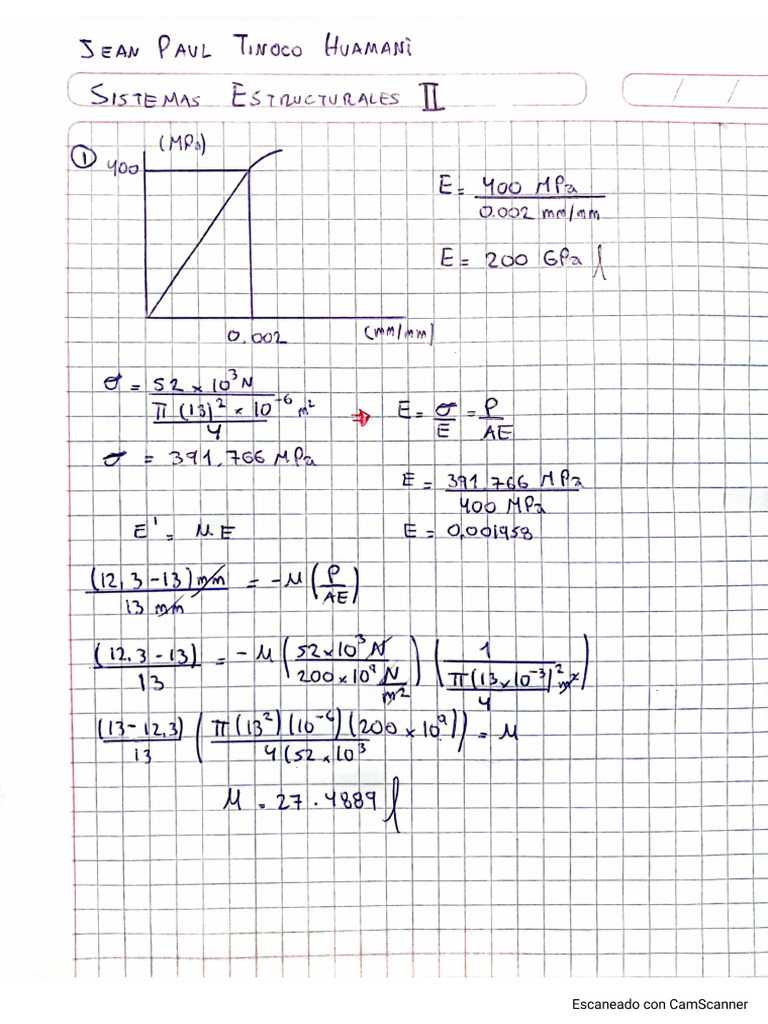 JEAN PAUL TINOCO HUAMANI
SISTEMAS ESTRUCTURALES II
/ /
① (MPa)
400
0.002 (mm/mm)
E = 400 MPa / 0.002 mm/mm
E = 200 GPa
σ = 52 × 10³ N / (π (13)² × 10⁻⁶ m² / 4) ⇒ E = σ/E = P/AE
σ = 391,766 MPa
E = 391,766 MPa / 400 MPa
E' = μ.E
E = 0,001958
(12,3-13) mm / 13 mm = -μ (P/AE)
(12,3-13) / 13 = -μ (52×10³ N / 200×10⁹ N/m²) (1 / (π(13×10⁻³)² m² / 4))
(13-12,3) / 13 (π(13²)(10⁻⁶)(200×10⁹) / 4(52×10³)) = μ
μ = 27.4889
Escaneado con CamScanner